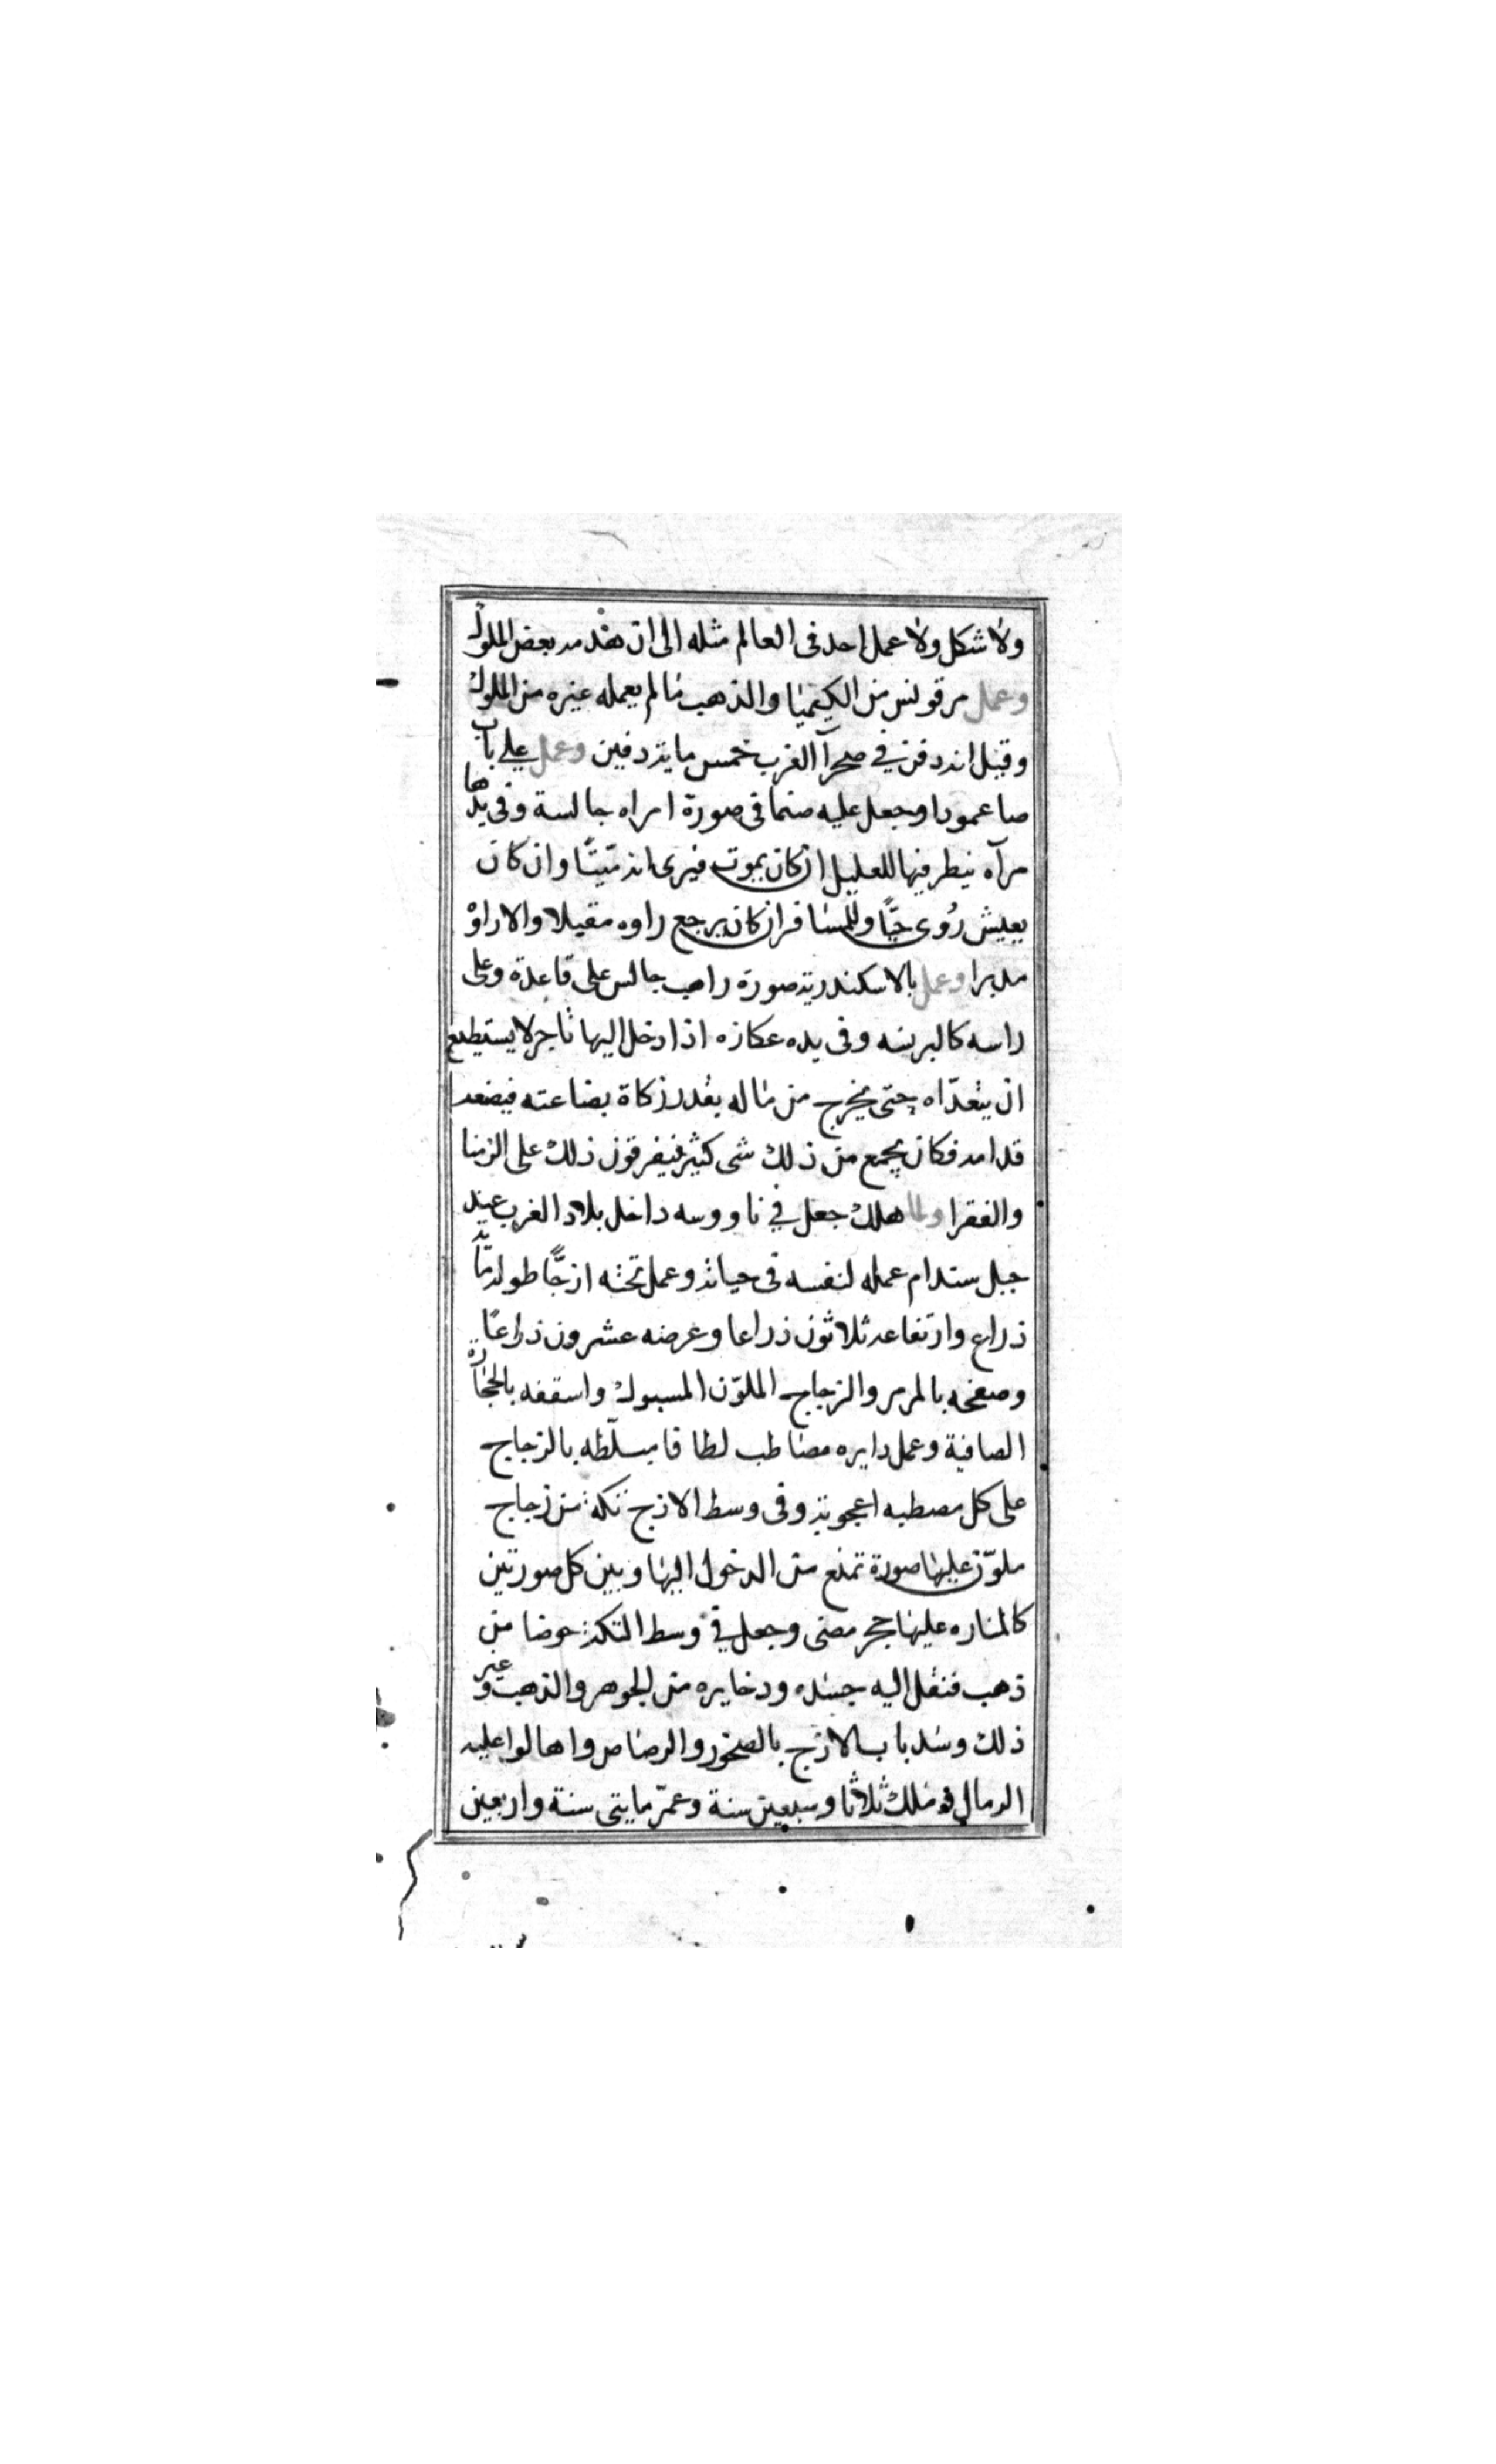 ولا شكل ولا عمل احد فى العالم مثله الى ان هدمه بعض الملوك
وعمل مرقونس من الكيميا والذهب مالم يعمله غيره من الملوك
وقيل انه دفن في صحرآ الغرب خمس ماية دفين وعمل على باب
صا عمودا وجعل عليه صنما فى صورة امراه جالسة وفى يدها
مرآه ينطر فيها للعليل ان كان يموت فيرى انه ميتًا وان كان
يعيش رُوى حيًّا وللمسافر ان كان يرجع راوه مقبلا والا راوْ
مدبرا وعمل بالاسكندرية صورة راهب جالس على قاعدة وعلى
راسه كالبرنسه وفى يده عكازه اذا دخل اليها تاجر لا يستيطيع
ان يتعدّاه حتى يخرج من ماله بقدر زكاة بضاعته فيضعه
قدامه فكان يجمع من ذلك شى كثير فيفرقون ذلك على الزمنا
والفقرا ولما هلك جعل في ناووسه داخل بلاد الغرب عند
جبل ستدام عمله لنفسه فى حياته وعمل تحته ازجًّا طوله مأية
ذراع وارتفاعه ثلاثون ذراعا وعرضه عشرون ذراعًا
وصفحه بالمرمر والزجاج الملوّن المسبوك واسقفه بالحجارة
الصافية وعمل دايره مصاطب لطافا مبلّطه بالزجاج
على كل مصطبه اعجوبة وفى وسط الازج تكة من زجاج
ملوّن عليها صورة تمنع من الدخول اليها وبين كل صورتين
كالمناره عليها حجر مضى وجعل في وسط التكة حوضا من
ذهب فنقل اليه جسده ودخايره من الجوهر والذهب وغير
ذلك وسد باب الازج بالصخور والرصاص واهالوا عليه
الرمال فملك ثلاثا وسبعين سنة وعمرّ مايتى سنة واربعين